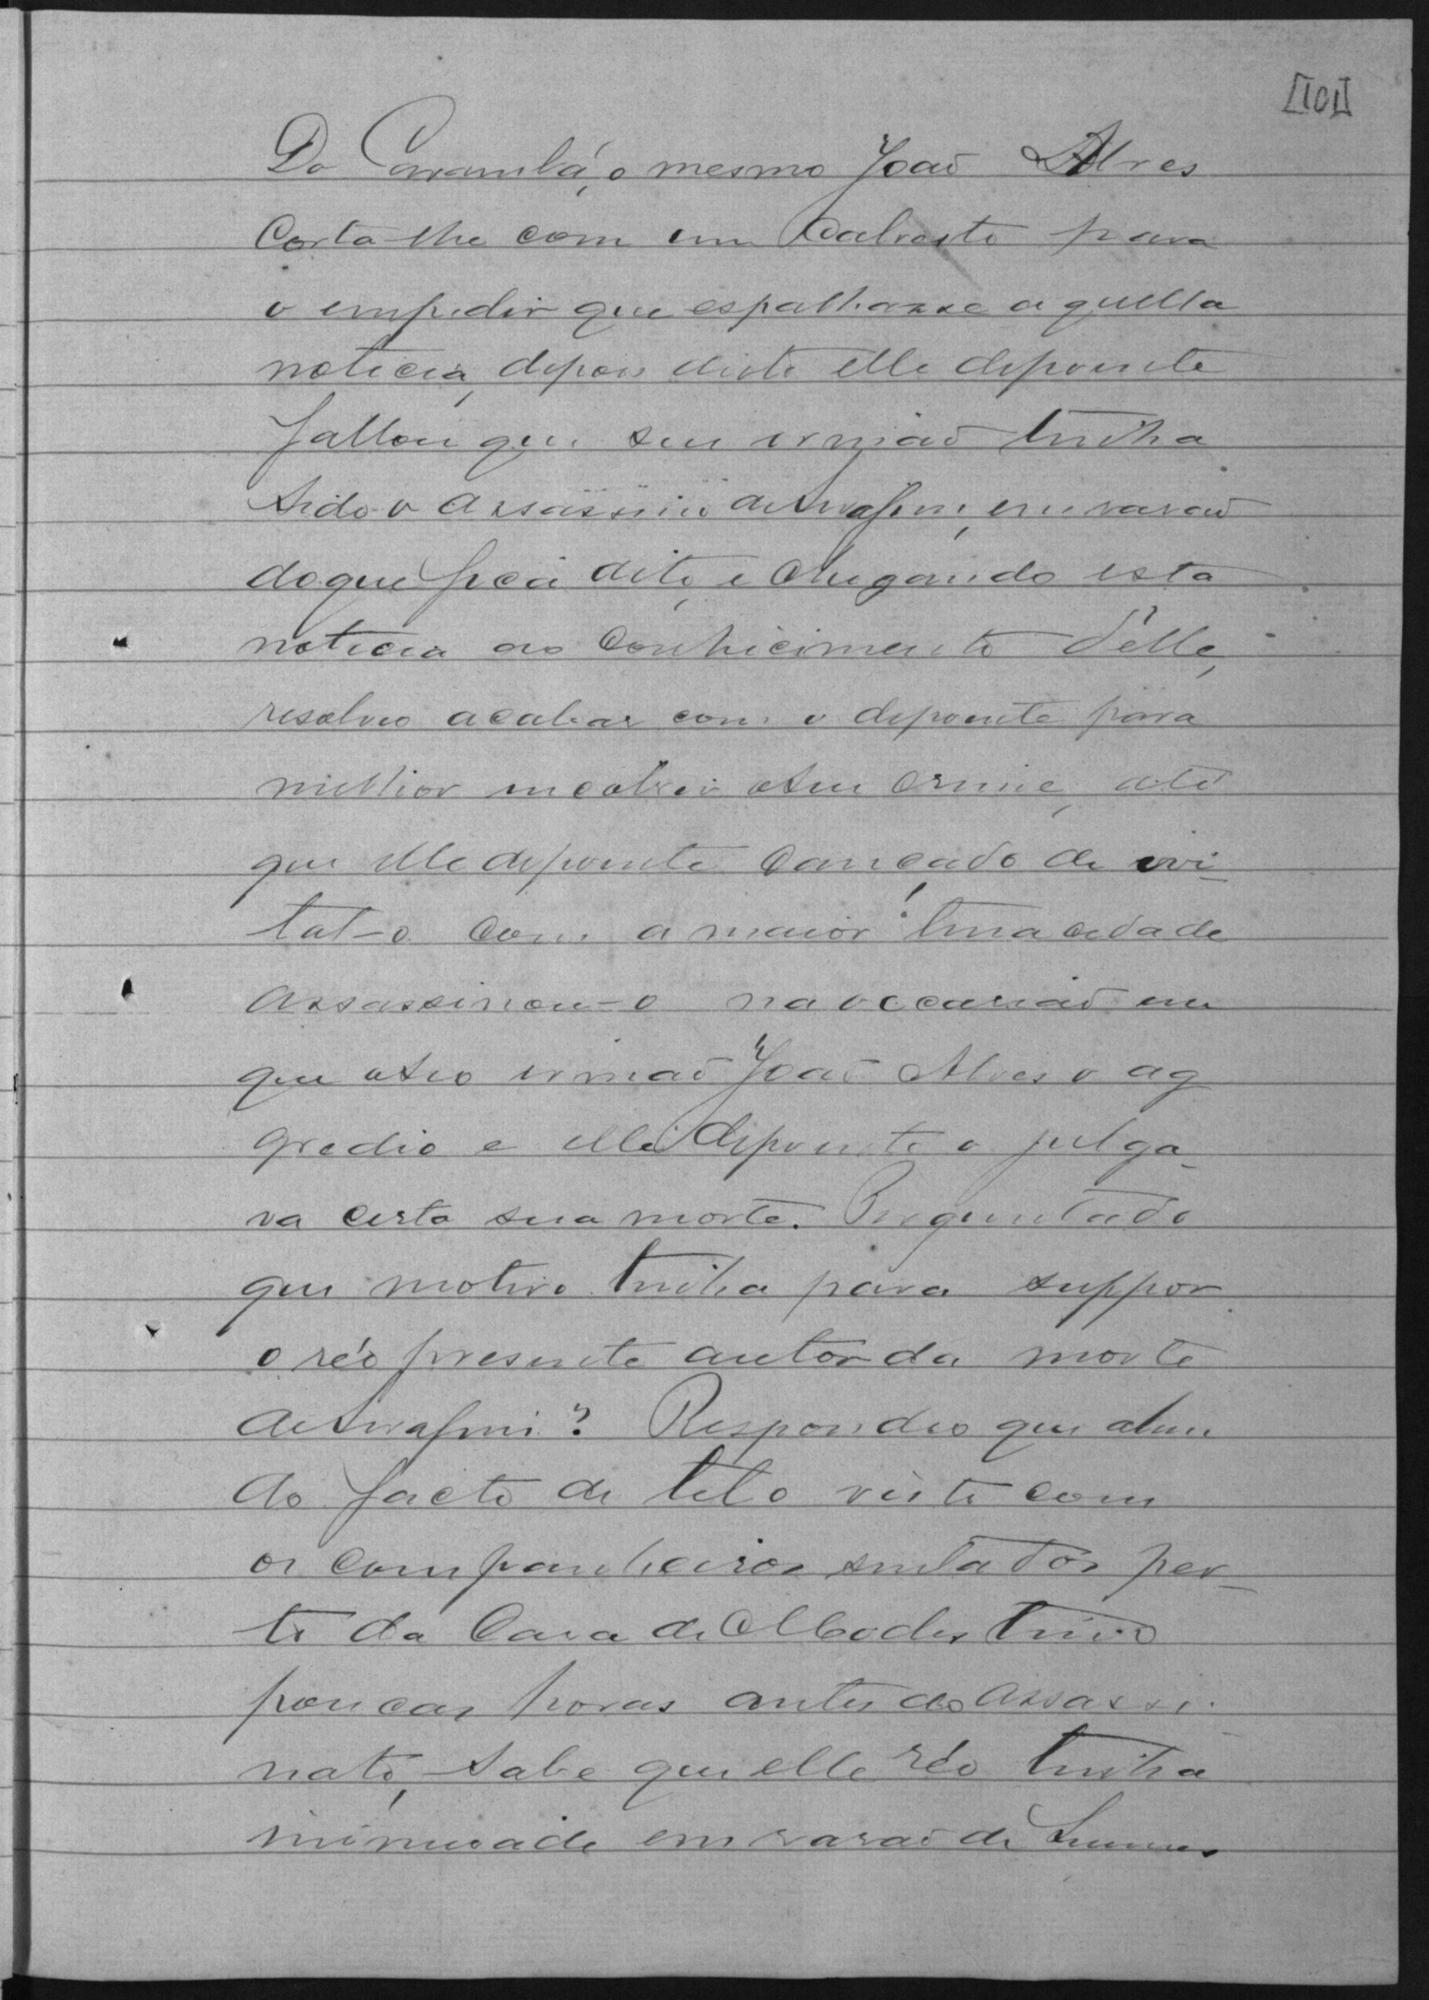 [101]
Do Corumbá, o mesmo João Alves
Corta-lhe com um Cabresto para
o empedir que espalhasse aquella
noticia, depois disto elle depoente
fallou que seu irmaõ tinha
sido o assassino de Serafim, em rasaõ
do que fica dito, e chegando esta
noticia ao conhicimento d'elle,
resolveo acabar com o depoente para
milhor encobrir o seu crime, até
que elle depoente cançado de evi-
tal-o com a maior tenacidade
assassinou-o na occasiaõ em
que o seo irmaõ João Alves o ag
gredio e elle depoente o julga-
va certa sua morte. Perguntado
que motivo tinha para suppor
o réo presente autor da morte
de Serafim? Respondeo que alem
do facto de tel o visto com
os companheiros sentados per-
to da Casa de Modestino
poucas horas antes do assassi-
nato, sabe que elle réo tinha
inimisade em rasaõ de